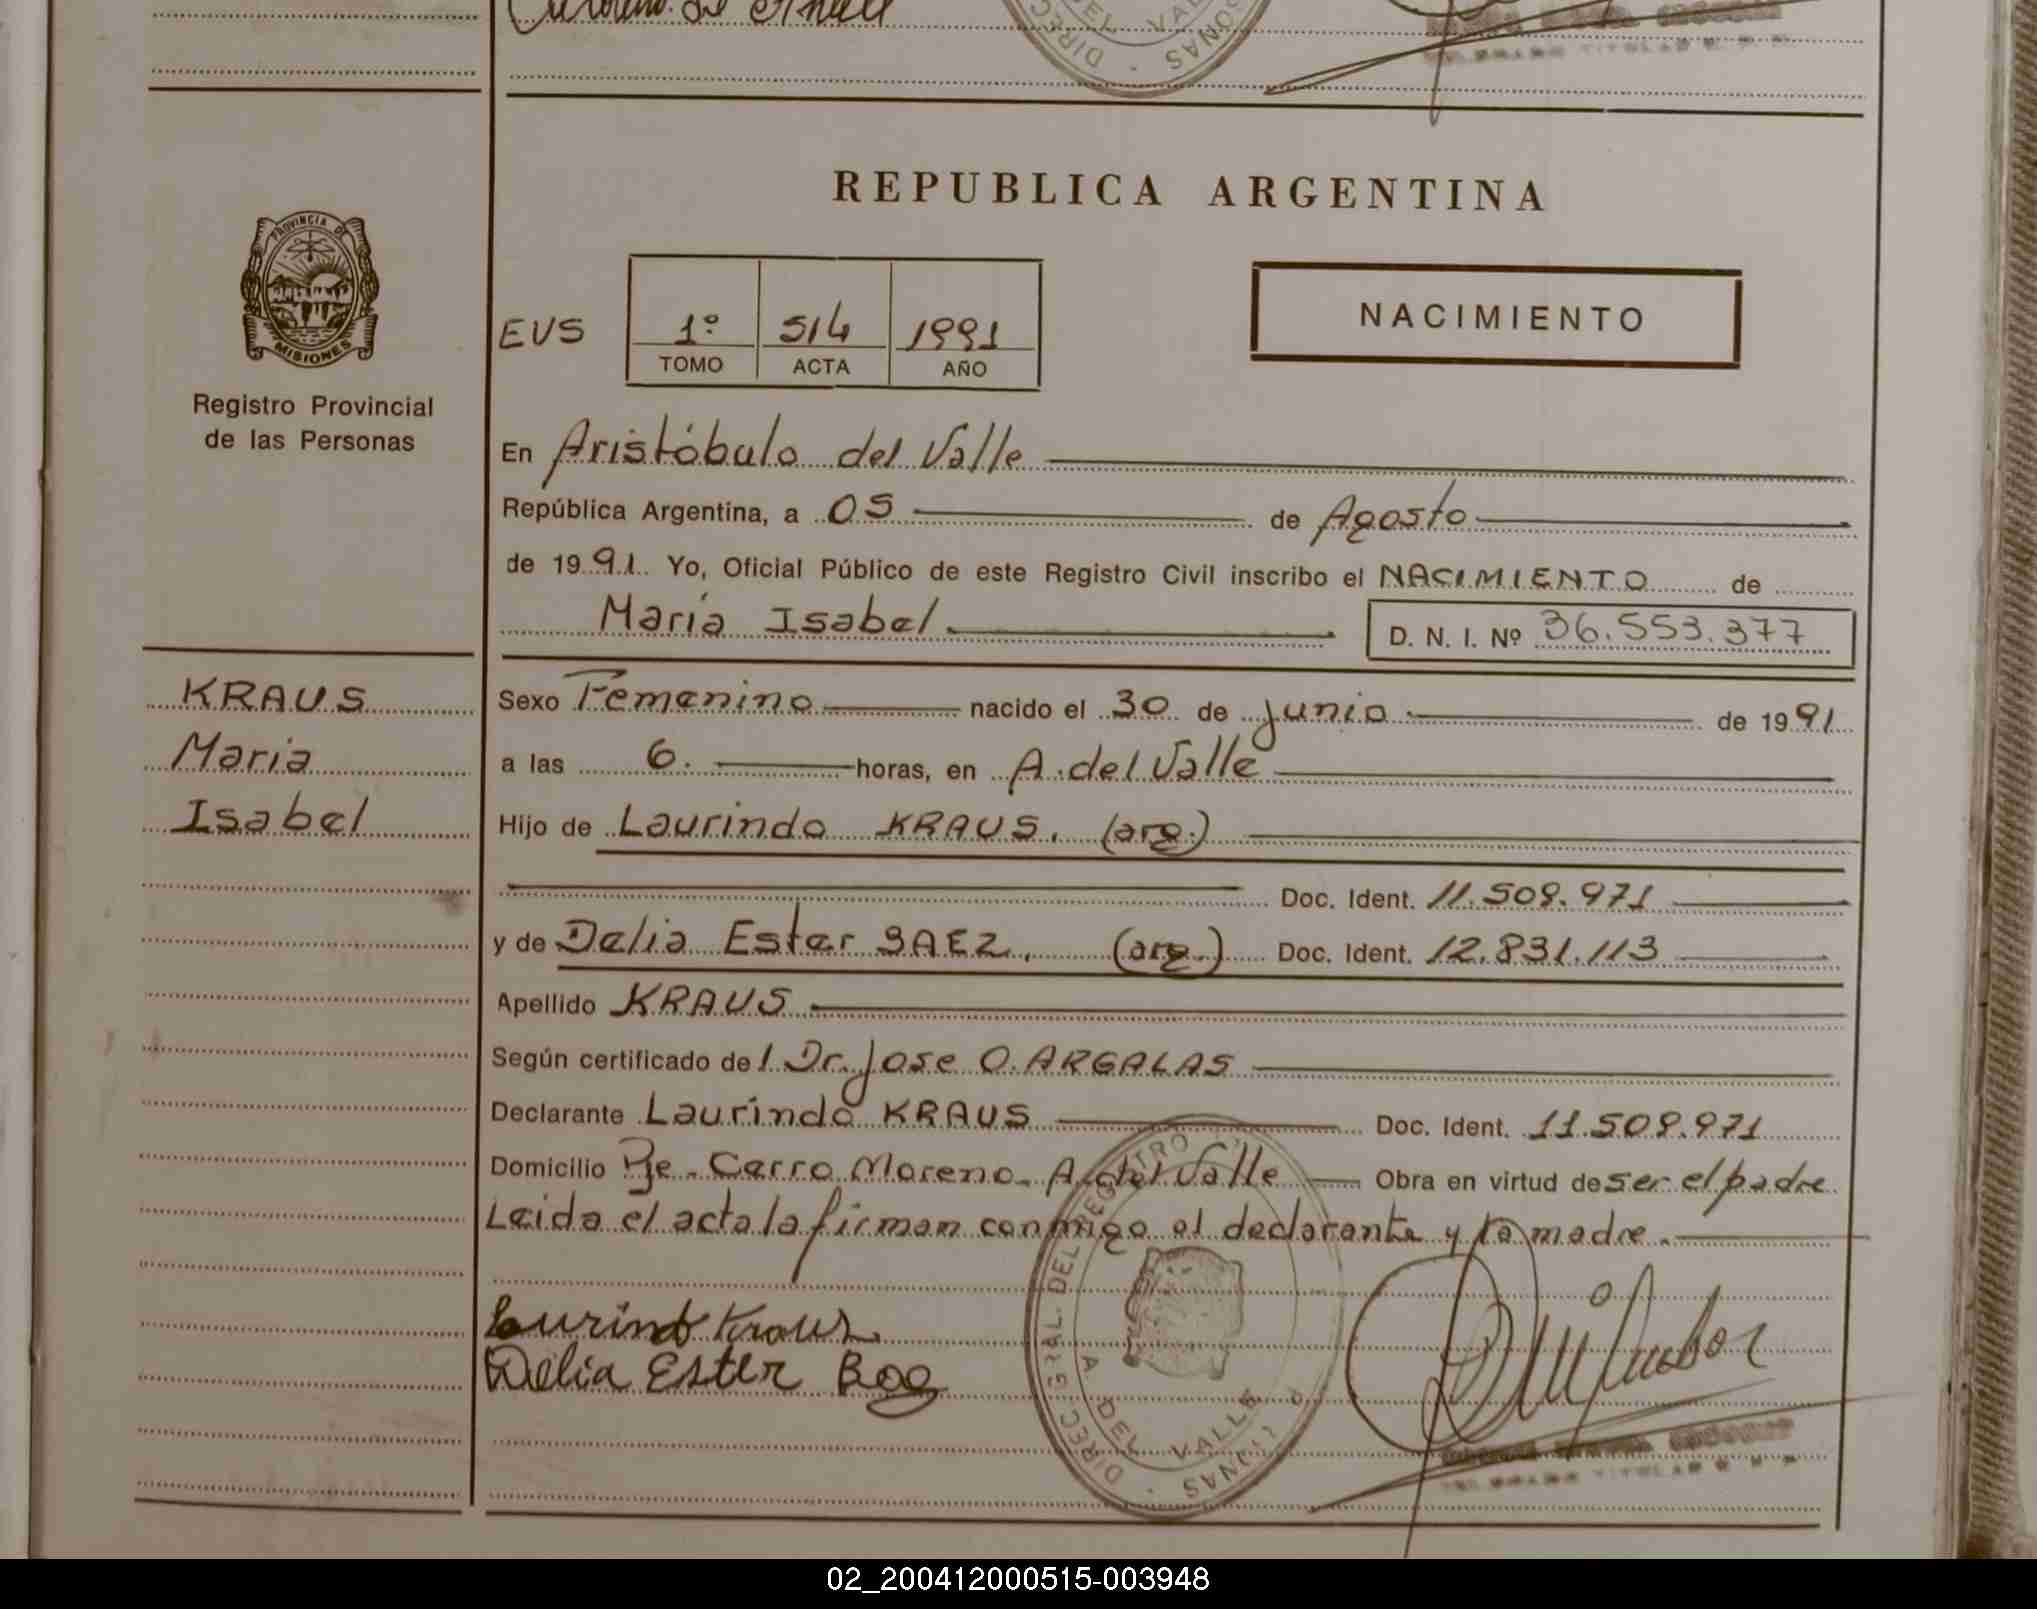 REPUBLICA ARGENTINA
PROVINCIA DE
MISIONES
Registro Provincial
de las Personas
EUS 1º 514 1991
TOMO ACTA AÑO
NACIMIENTO
En Aristóbulo del Valle
República Argentina, a 05 de Agosto
de 1991. Yo, Oficial Público de este Registro Civil inscribo el NACIMIENTO de
María Isabel D. N. I. Nº 36.553.377
KRAUS
Maria
Isabel
Sexo Femenino nacido el 30 de junio de 1991
a las 6. horas, en A. del Valle
Hijo de Laurindo KRAUS. (arg.)
Doc. Ident. 11.509.971
y de Delia Ester SAEZ. (arg.) Doc. Ident. 12.831.113
Apellido KRAUS
Según certificado de l Dr. Jose O. ARGALAS
Declarante Laurindo KRAUS Doc. Ident. 11.509.971
Domicilio Pje. Cerro Moreno. A. del Valle Obra en virtud de ser el padre
Leida el acta la firman conmigo el declarante y la madre.
Laurindo Kraus
Delia Ester
DIREC. GRAL. DEL REGISTRO
A. DEL VALLE
02_200412000515-003948